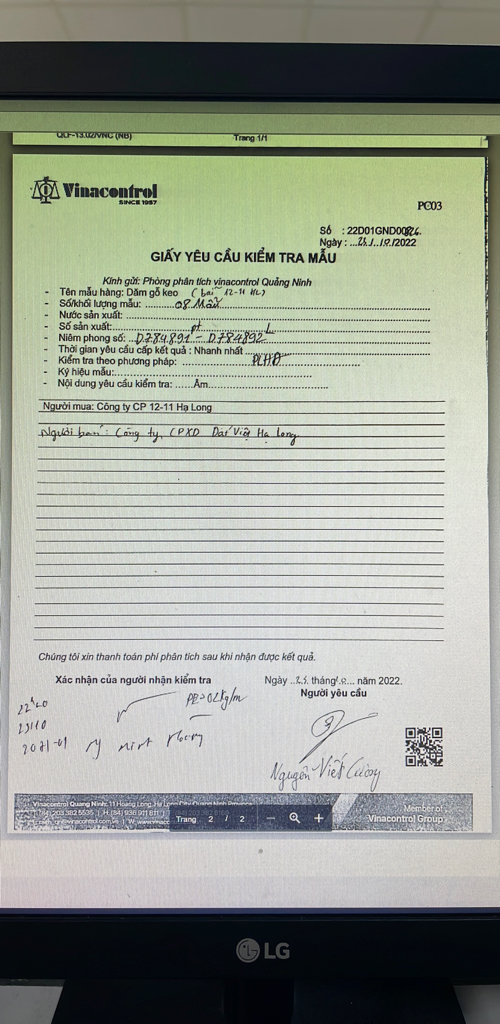 QLF-13.02/VNC (NB) Trang 1/1
Vinacontrol
SINCE 1957
PC03
Số : 22D01GND00824
Ngày : ...25.../.10./2022
GIẤY YÊU CẦU KIỂM TRA MẪU
Kính gửi: Phòng phân tích vinacontrol Quảng Ninh
- Tên mẫu hàng: Dăm gỗ keo (bãi 12-11 HL)
- Số/khối lượng mẫu: 08 Mẫu
- Nước sản xuất:
- Số sản xuất:
- Niêm phong số: D784891 - D784892
- Thời gian yêu cầu cấp kết quả : Nhanh nhất
- Kiểm tra theo phương pháp: PLHĐ
- Ký hiệu mẫu:
- Nội dung yêu cầu kiểm tra: ......Ẩm
Người mua: Công ty CP 12-11 Hạ Long
Người bán: Công ty CPXD Đất Việt Hạ Long
Chúng tôi xin thanh toán phí phân tích sau khi nhận được kết quả.
Xác nhận của người nhận kiểm tra
Ngày ..25. tháng 10... năm 2022.
Người yêu cầu
Nguyễn Viết Cường
Vinacontrol Quang Ninh: 11 Hoang Long, Ha Long City, Quang Ninh Province
Member of
Vinacontrol Group
Trang 2 / 2
LG